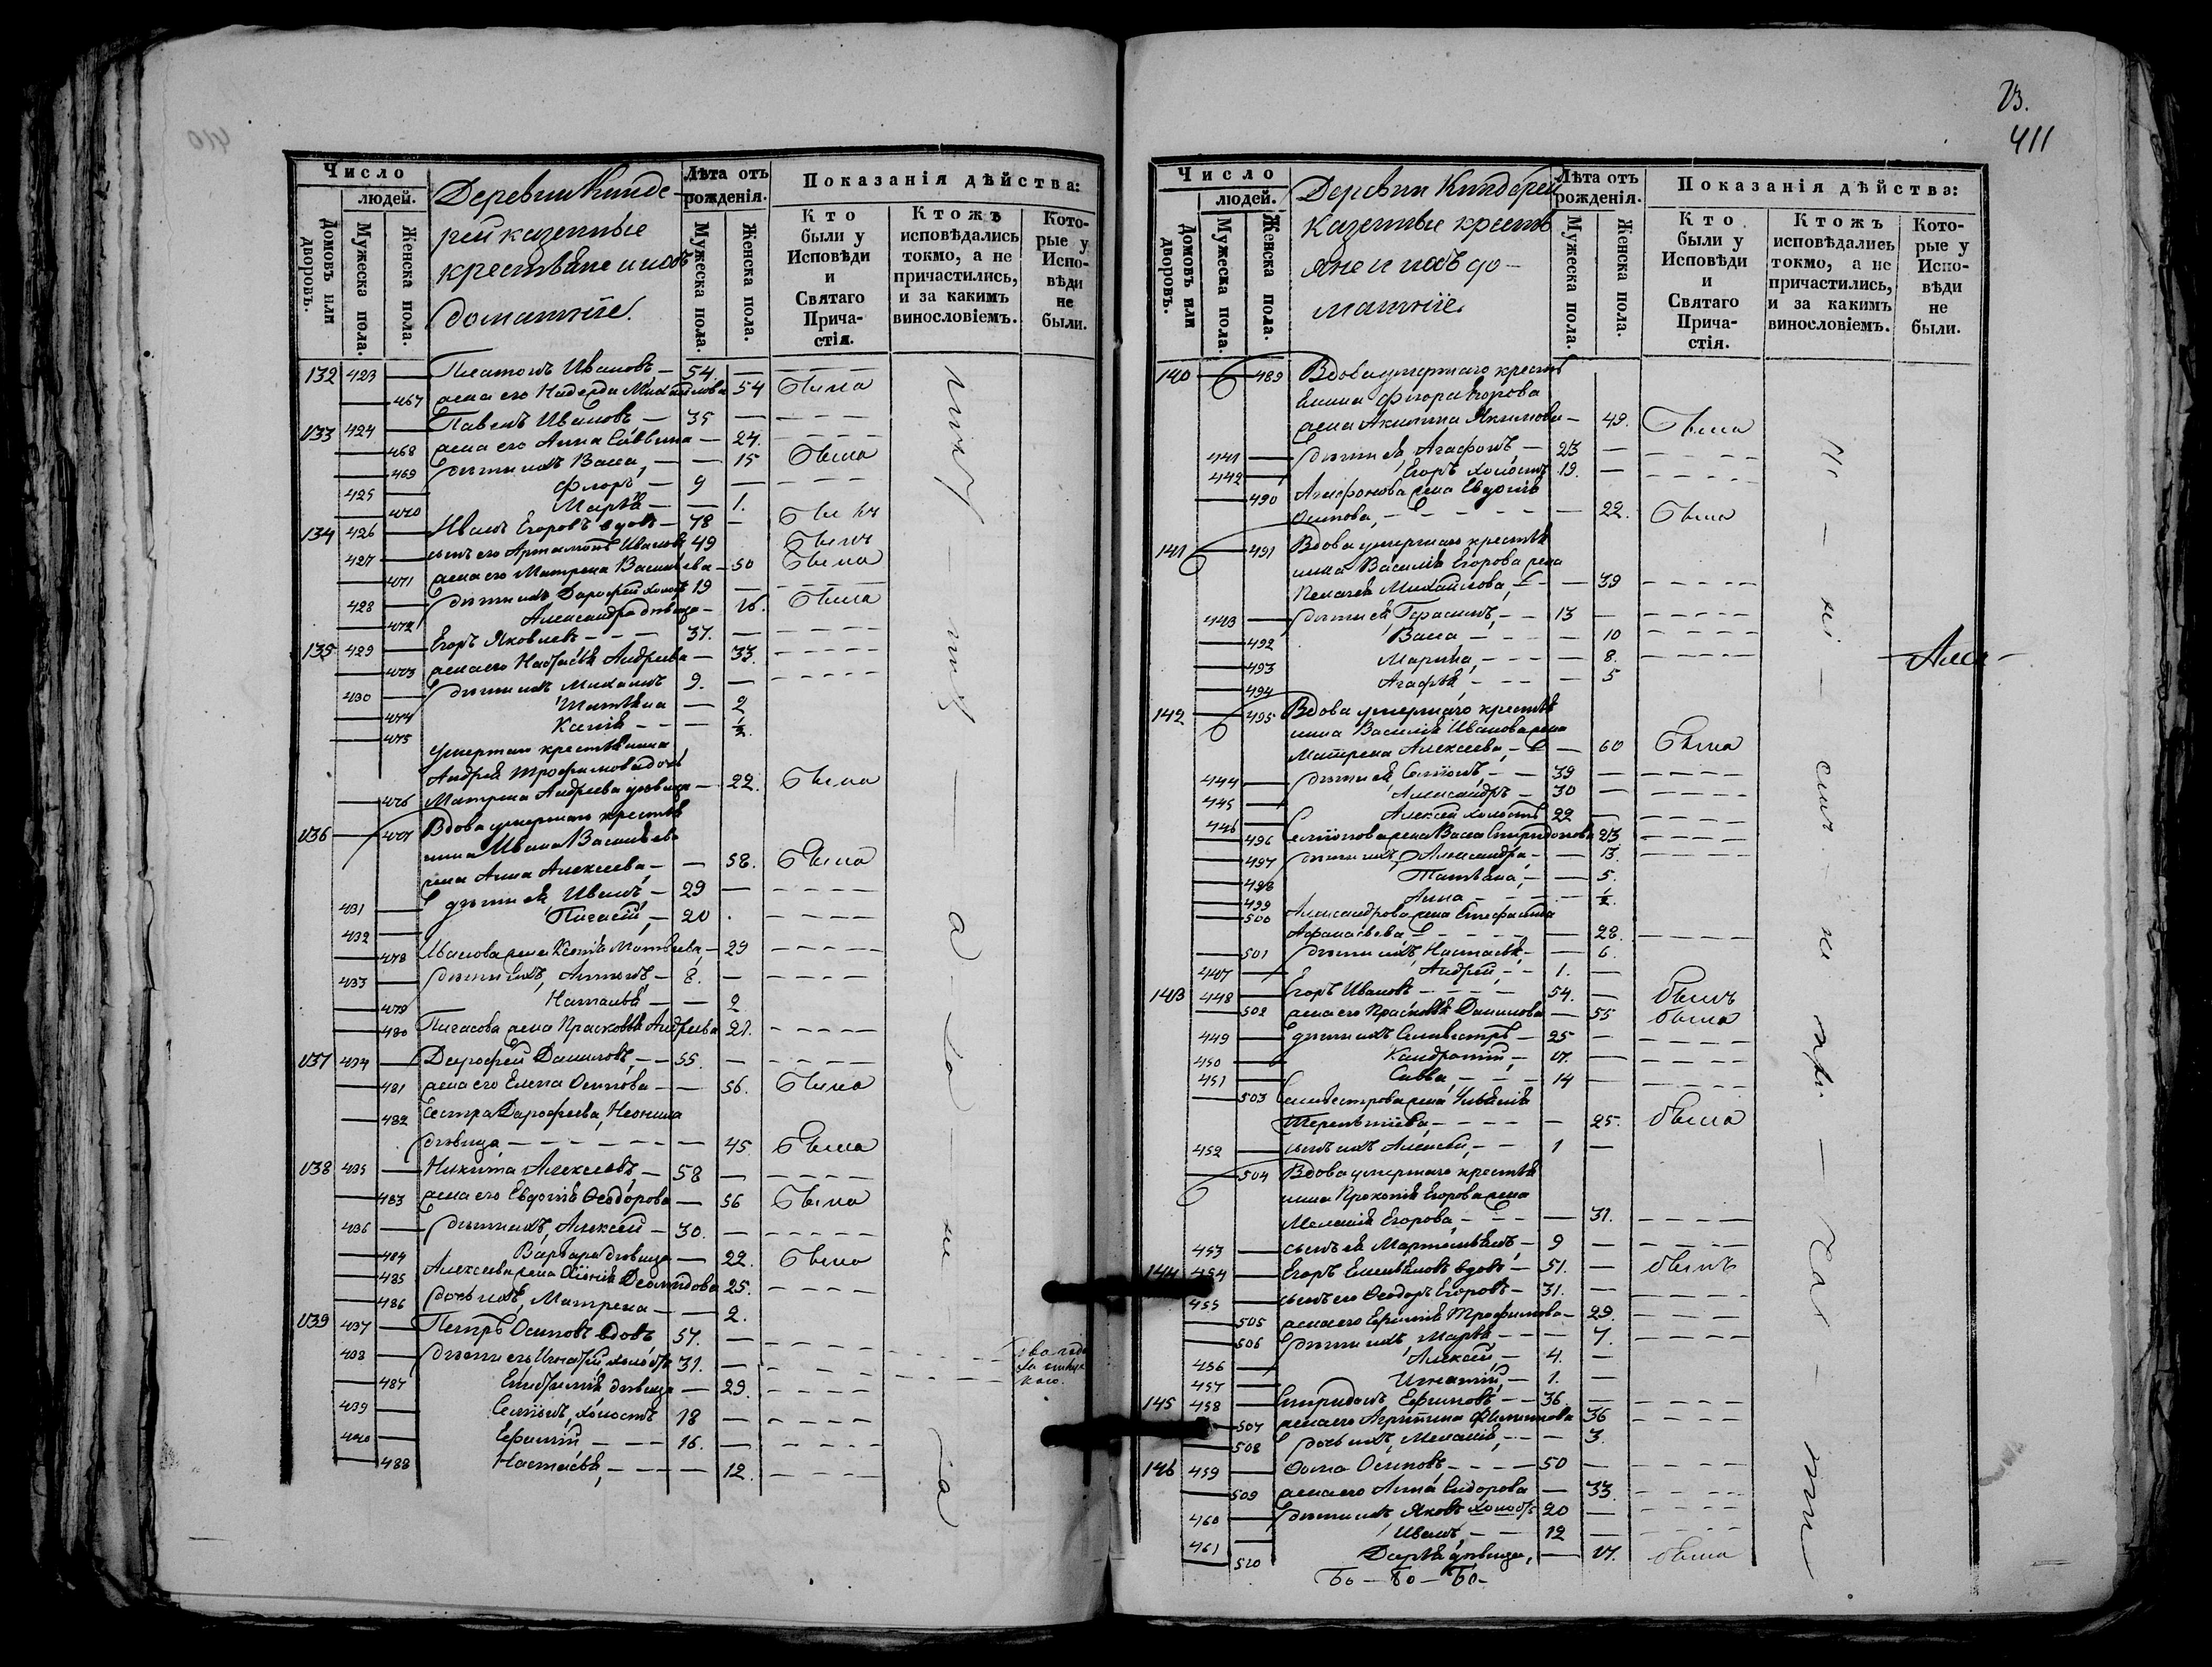 Число
людей.
Домовъ или дворовъ.
Мужеска пола.
Женска пола.
Деревни Кинде-
рей казенные
крестьяне и ихъ
домашніе.
Лѣта отъ рожденія.
Мужеска пола.
Женска пола.
Показанія дѣйства:
Кто были у Исповѣди и Святаго Причастія.
Ктожъ исповѣдались токмо, а не причастились, и за какимъ винословіемъ.
Которые у Исповѣди не были.
132 423 — Платонъ Ивановъ — 54 —
467 жена его Надежда Михайлова 54 была
133 424 — Павелъ Ивановъ — 35 —
468 жена его Анна Саввина — 24.
469 дѣти ихъ Васса — — 15 была
425 — Флоръ — 9 —
470 Марѳа — — 1.
134 426 — Иванъ Егоровъ вдовъ — 78 — былъ
427 — сынъ его Артамонъ Ивановъ 49 былъ
471 жена его Матрена Васильева — 50 была
428 — дѣти ихъ Дорофей холостъ 19 —
472 Александра дѣвица — 16. была
135 429 — Егоръ Яковлевъ — — — 37. —
473 жена его Настасья Андреева — 33.
430 — дѣти ихъ Михаилъ 9. —
474 Татьяна — 2
475 — — — ½.
умершаго крестьянина
Андрея Трофимова дочь
476 Матрена Андреева дѣвица — 22. была
136 — 477 Вдова умершаго крестья
нина Ивана Васильева
жена Анна Алексеева, — — 58. была
431 — дѣти ея Иванъ, — 29 —
432 — 20
478 Иванова жена Ксенія Матвеева, — 29
433 — дѣти ихъ, Антонъ, — 8. —
479 Наталья — — 2
480 жена Прасковья Андреева 21.
137 434 — Дорофей Даниловъ, — — 55. —
481 жена его Елена Осипова — — 56. была
482 Сестра Дорофеева,
дѣвица, — — — 45. была
138 435 — Никита Алексеевъ, — 58 —
483 жена его Евдокія Ѳеодорова — 56 была
436 — дѣти ихъ, Алексей — 30. —
484 Варвара дѣвица — 22. была
485 Алексеева жена 25.
486 дочь ихъ, Матрена — — 2.
139 437 — Петръ Осиповъ вдовъ 57. —
438 — дѣти его Игнатій холостъ 31. —
487 дѣвица — 29.
439 — Семіонъ, холостъ 18 —
440 — Ефимій — — — 16. —
488 Настасья, — — — 12.
23.
411
Число
людей.
Домовъ или дворовъ.
Мужеска пола.
Женска пола.
Деревни Киндерей
Казенные кресть
яне и ихъ до-
машніе.
Лѣта отъ рожденія.
Мужеска пола.
Женска пола.
Показанія дѣйства:
Кто были у Исповѣди и Святаго Причастія.
Ктожъ исповѣдались токмо, а не причастились, и за какимъ винословіемъ.
Которые у Исповѣди не были.
140 489 Вдова умершаго кресть
янина Флора Егорова
жена Акилина Якимова — 49. была
441 — дѣти ея, Агафонъ, — 23 —
442 — Егоръ холостъ 19. —
490 Агафонова жена Евдокія
Осипова, — — — 22. была
141 491 Вдова умершаго крестья
нина Василія Егорова жена
Пелагея Михайлова, — — 39
443 — дѣти ея, Герасимъ, — — 13 —
492 Васса — — — — 10
493 Марина, — — — 8.
494 Агафья, — — — 5
142 495 Вдова умершаго крестья
нина Василія Иванова жена
Матрена Алексеева, — — 60 была
444 — дѣти ея, Семіонъ, — — 39 —
445 — Александръ — 30 —
446 — Алексей холостъ 22 —
496 Семіонова жена Васса Спиридонова 23
497 дѣти ихъ, Александра — — 13.
498 Татьяна, — — 5.
499 Анна — — — ½.
500 Александрова жена Стефанида
Афанасьева — — 28.
501 дѣти ихъ, Настасья, — — 6.
447 — Андрей — — 1. —
143 448 — Егоръ Ивановъ — — — 54. — былъ
502 жена его Прасковья Данилова — 55 была
449 — дѣти ихъ Селивестръ — 25 —
450 — Кандратій, — 17. —
451 — Савва, — — 14 —
503 Селивестрова жена Ульянія
Терентіева — — — — 25. была
452 — сынъ ихъ Алексей, — — 1 —
504 Вдова умершаго крестья
нина Прокопія Егорова жена
Меланія Егорова, — — — 31.
453 — сынъ ея 9 —
144 454 — Егоръ Емельяновъ вдовъ — 51. — былъ
455 — сынъ его Ѳеодоръ Егоровъ — 31. —
505 жена его Ефимія Трофимова — 29.
506 дѣти ихъ, Марѳа — — — 7.
456 — Алексей, — 4. —
457 — Игнатій, — 1. —
145 458 — Спиридонъ Ефимовъ — — 36. —
507 жена его Агрипина Филипова 36
508 дочь ихъ, Меланія, — — — 3.
146 459 — Ѳома Осиповъ — — — 50 —
509 жена его Анна Сидорова — 33.
460 — дѣти ихъ Яковъ холостъ 20 —
461 — Иванъ, — — 12 —
510 Дарья дѣвица, — 17. была
Бо — Бо — Бо —